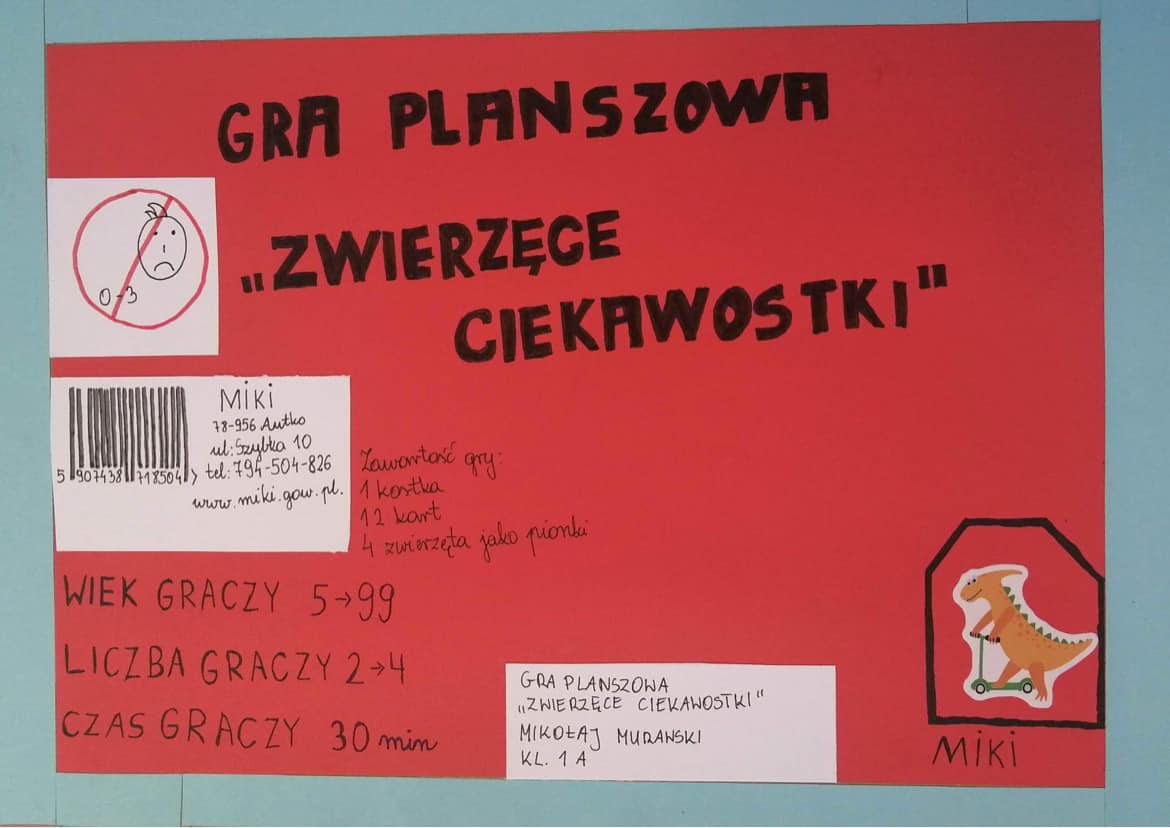 GRA PLANSZOWA
„ZWIERZĘCE
CIEKAWOSTKI"
0-3
MIKI
78-956 Autko
ul: Szybka 10
tel: 794-504-826
www.miki.gow.pl.
5 907438 718504 >
Zawartość gry:
1 kostka
12 kart
4 zwierzęta jako pionki
WIEK GRACZY 5→99
LICZBA GRACZY 2→4
CZAS GRACZY 30 min
GRA PLANSZOWA
„ZWIERZĘCE CIEKAWOSTKI"
MIKOŁAJ MURAWSKI
KL. 1 A
MIKI